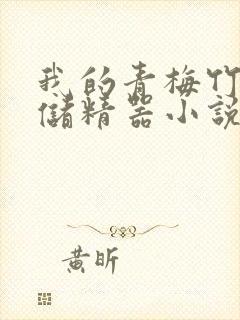 我的青梅竹
儲精器小說
黃昕